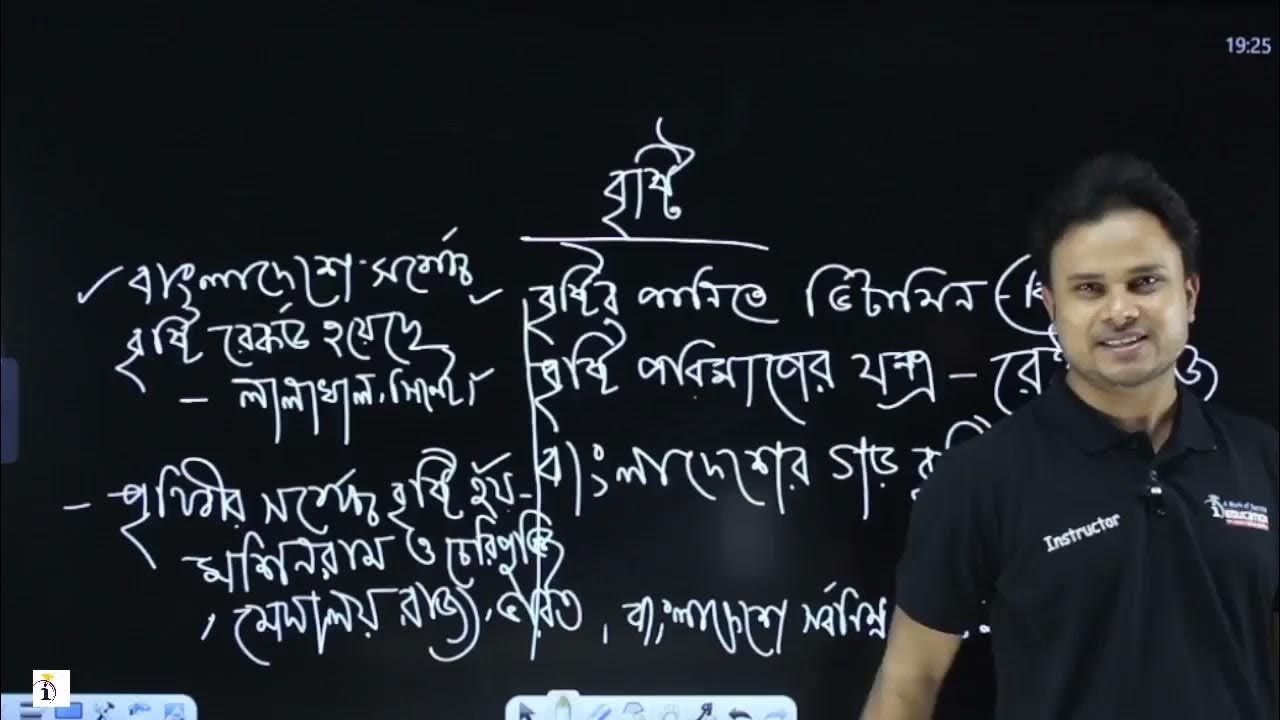 19:25
বৃষ্টি
বাংলাদেশে সর্বোচ্চ
বৃষ্টি রেকর্ড হয়েছে
- লালাখাল, সিলেট।
- পৃথিবীর সর্বোচ্চ বৃষ্টি হয় -
মৌসিনরাম ও চেরাপুঞ্জি
, মেঘালয় রাজ্য, ভারত
বৃষ্টির পানিতে ভিটামিন - (বি
বৃষ্টি পরিমাপের যন্ত্র - রেইন
বাংলাদেশের গড়
বাংলাদেশে সর্বনিম্ন
Instructor
EDUCATION